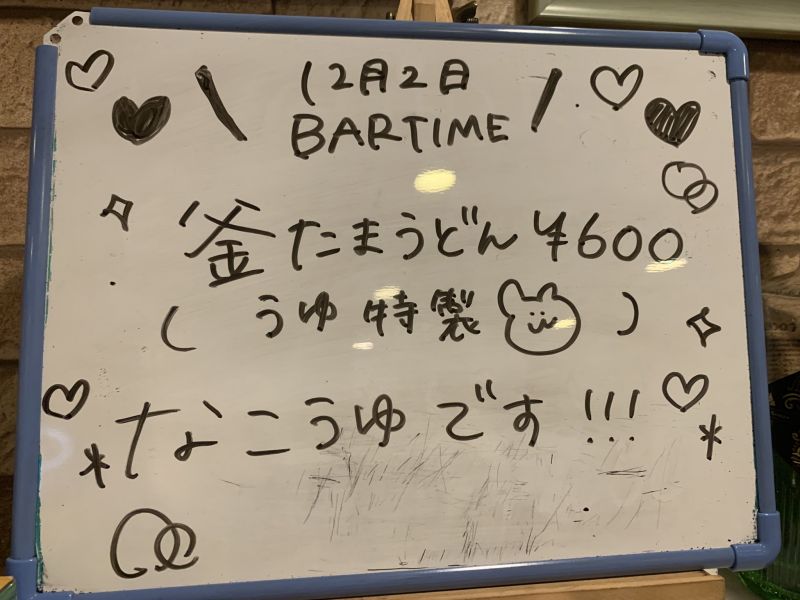 12月2日
BARTIME
釜たまうどん ¥600
( うゆ 特製 )
なこうゆです!!!